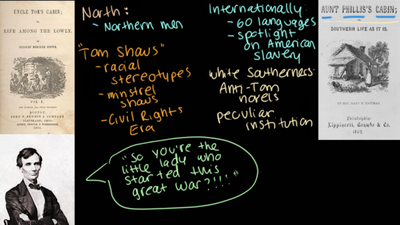 UNCLE TOM'S CABIN;
OR,
LIFE AMONG THE LOWLY.
BY
HARRIET BEECHER STOWE.
VOL. I.
BOSTON:
JOHN P. JEWETT & COMPANY
1852.
North:
- Northern men
"Tom Shows"
- racial
stereotypes
- minstrel
shows
- Civil Rights
Era
Internationally
- 60 languages
- spotlight
on American
slavery
White Southerners:
Anti-Tom
novels
peculiar
institution
AUNT PHILLIS'S CABIN;
OR,
SOUTHERN LIFE AS IT IS.
BY MRS. MARY H. EASTMAN.
Philadelphia:
Lippincott, Grambo & Co.
1852.
"So you're the
little lady who
started this
great war?!!!"